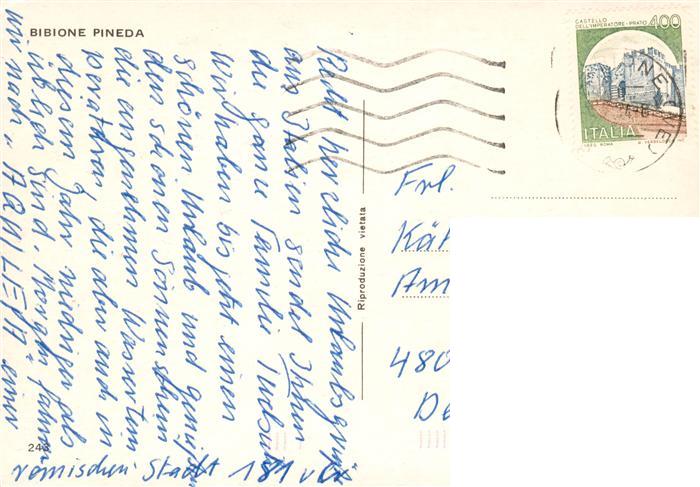 BIBIONE PINEDA
CASTELLO
DELL'IMPERATORE - PRATO
400
ITALIA
I.P.Z.S. ROMA
Recht herzliche Urlaubsgrüße
aus Italien sendet Ihnen
die ganze Familie
Wir haben bis jetzt einen
schönen Urlaub und genießen
den schönen Sonnenschein
die angenehmen Wassertem
peraturen, die aber auch in
diesem Jahr niedriger als
üblich sind. Morgen fahren
wir nach "AQUILEJA" einer
römischen Stadt 181 v. Chr
Riproduzione vietata
Frl.
Kät
Am
480
De
243